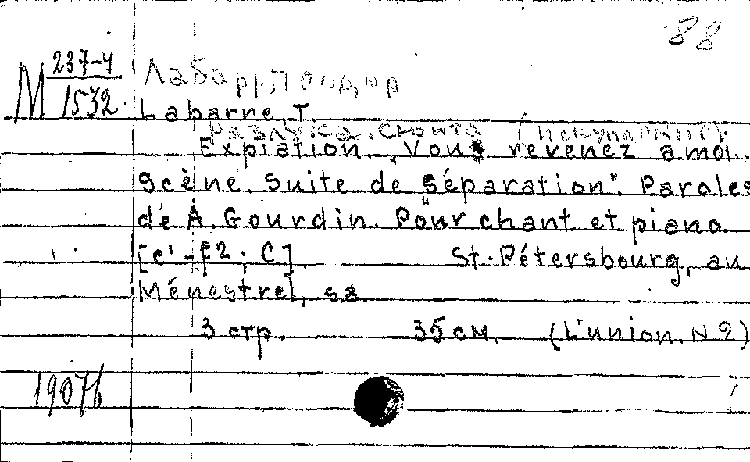 88
M 237-4/1532
Лабарр, Теодор
Labarne, T.
Разлука. Сюита
Expiation „Vous revenez à moi.
Scène. Suite de "Séparation". Paroles
de A. Gourdin. Pour chant et piano
[c¹-f2. C] St-Pétersbourg, au
Ménestrel, sa
3 стр. 35 см. (L'union. N 2)
19076